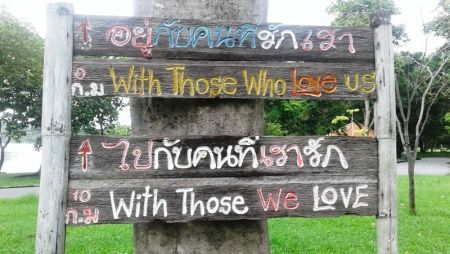 อยู่กับคนที่รักเรา
0 ก.ม With Those Who Love us
ไปกับคนที่เรารัก
10 ก.ม With Those We LOVE